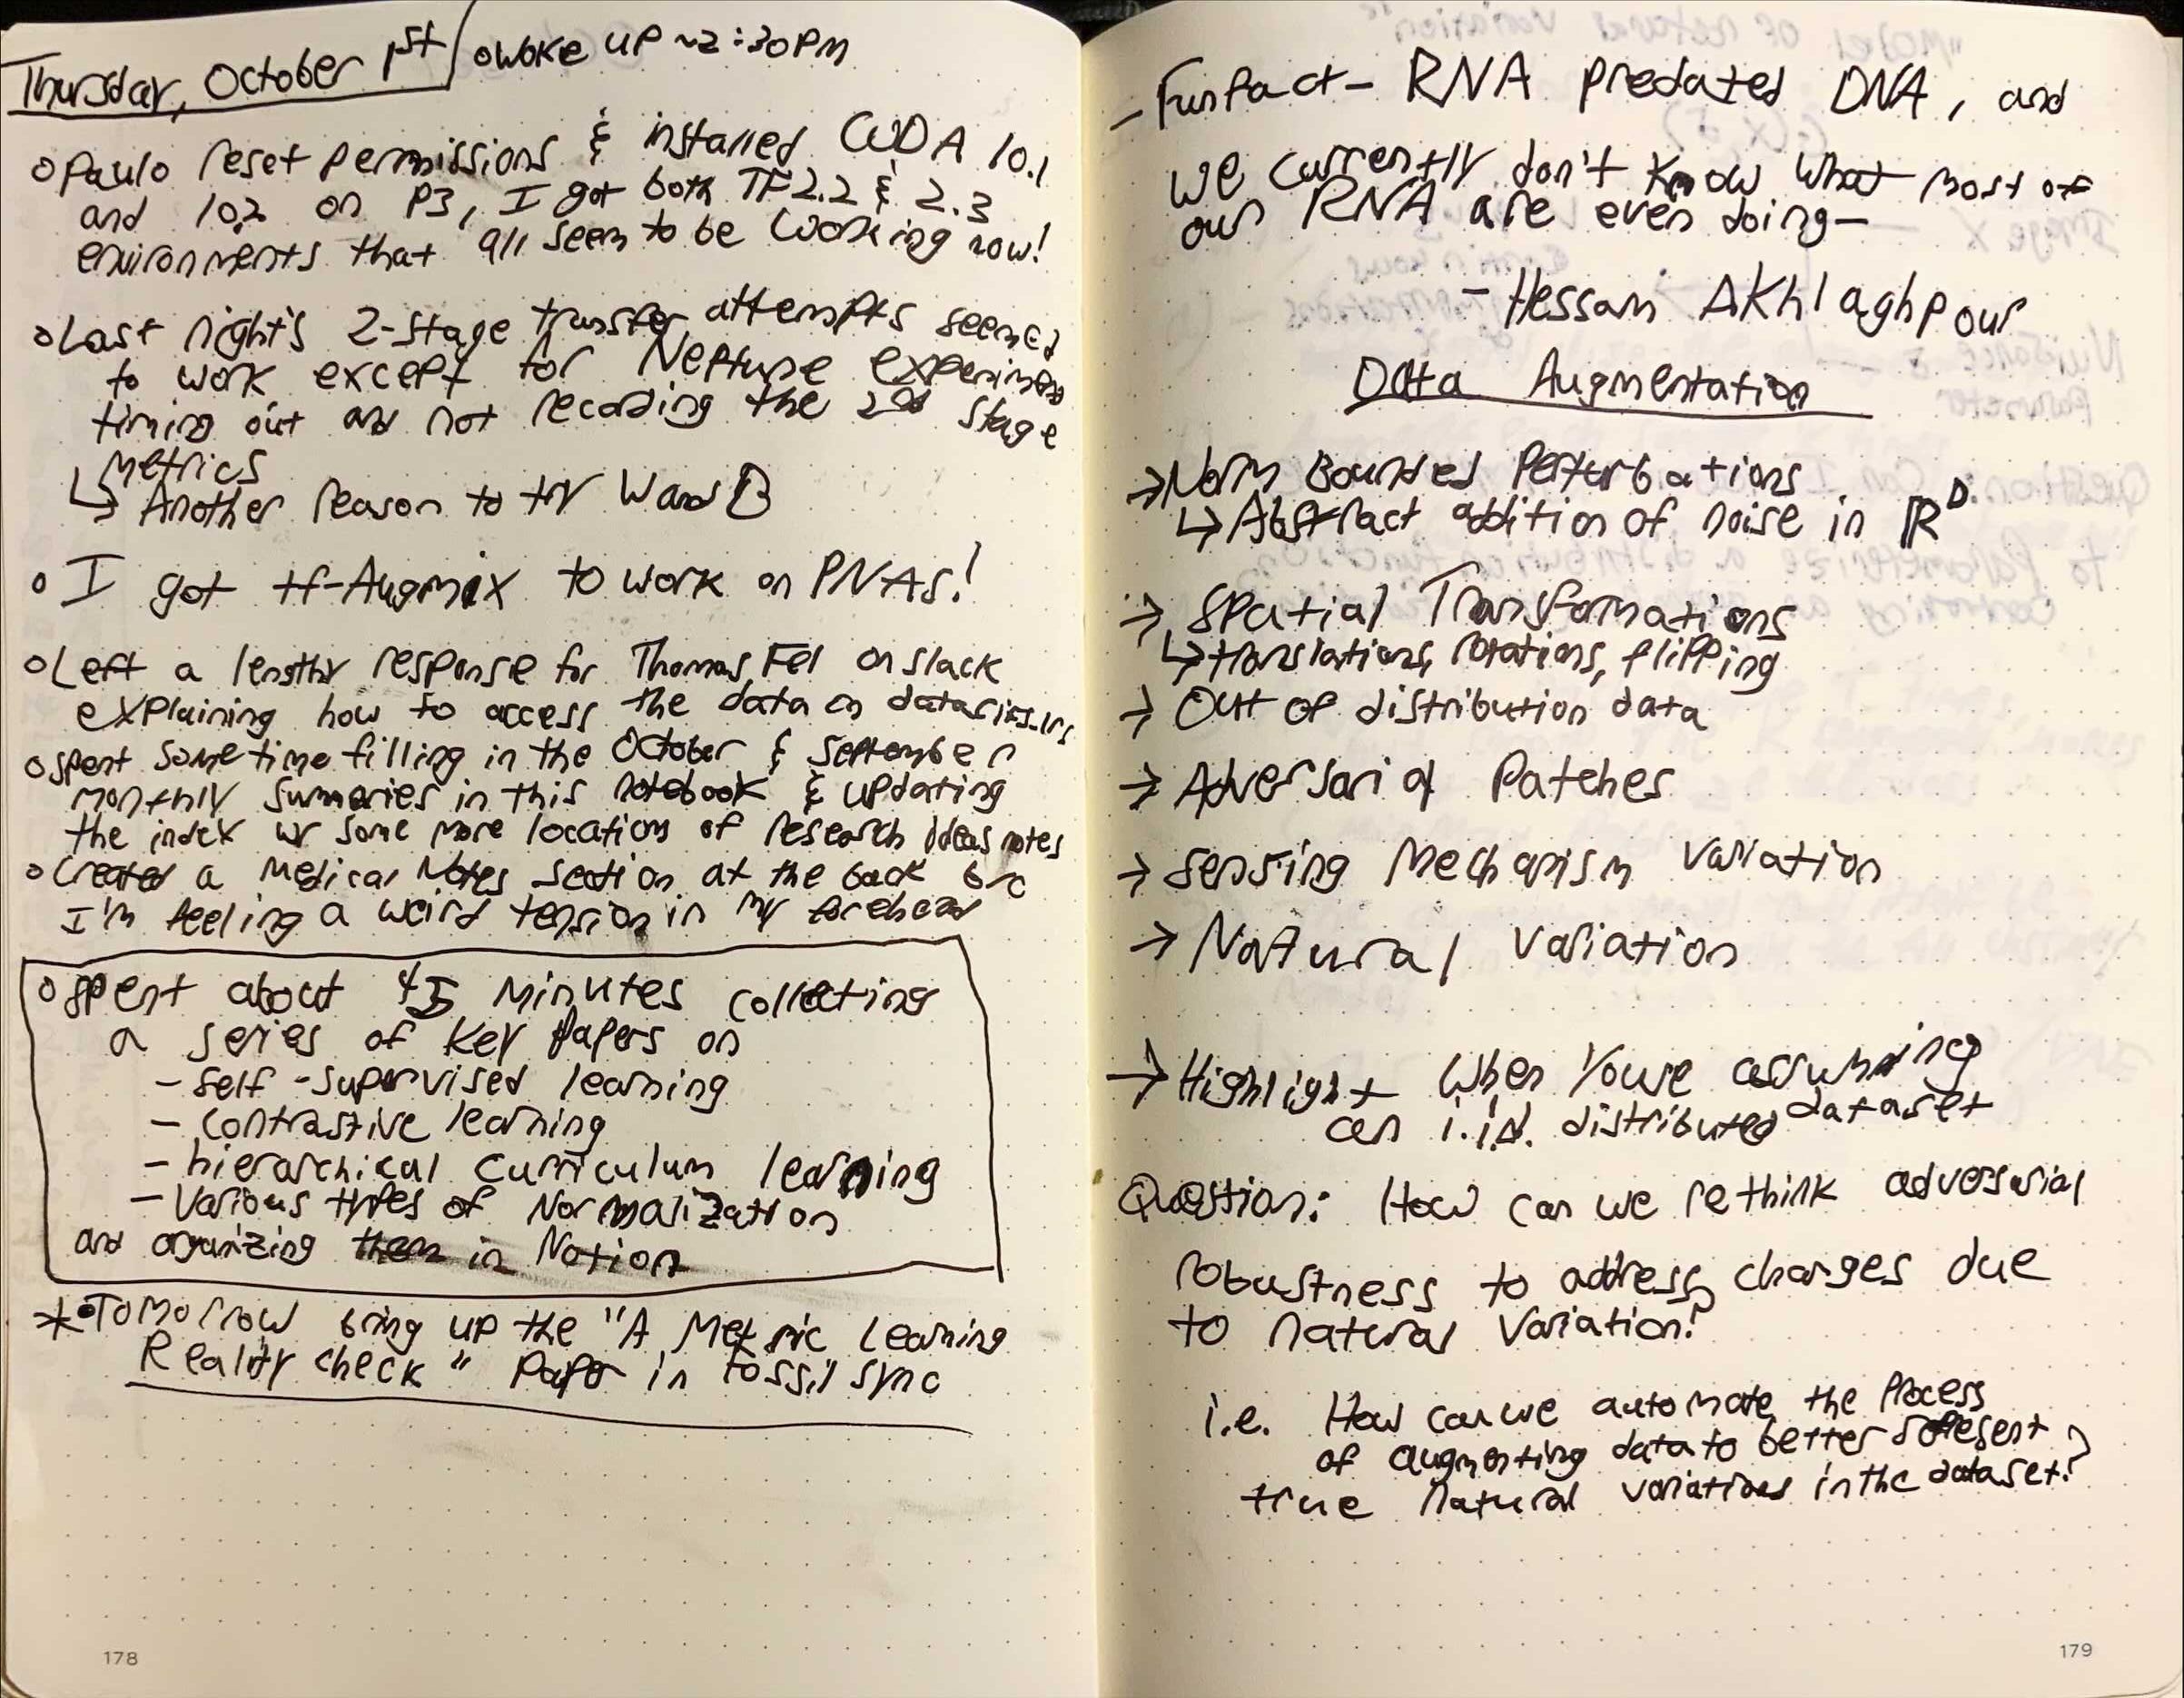 Thursday, October 1st / o Woke up ~2:30PM
o Paulo reset permissions & installed CUDA 10.1
and 10.2 on P3, I got both TF2.2 & 2.3
environments that all seem to be working now!
o Last night's 2-stage transfer attempts seemed
to work except for Neptune experiments
timing out and not recording the 2nd stage
metrics
↳ Another reason to try WandB
o I got tf-Augmix to work on PNAS!
o Left a lengthy response for Thomas Fel on slack
explaining how to access the data on
o Spent some time filling in the October & September
monthly summaries in this notebook & updating
the index w/ some more locations of research ideas notes
o Created a Medical Notes section at the back b/c
I'm feeling a weird tension in my forehead
o Spent about 45 minutes collecting
a series of key papers on
- self-supervised learning
- contrastive learning
- hierarchical curriculum learning
- Various types of Normalization
and organizing them in Notion
* Tomorrow bring up the "A Metric Learning
Reality check" paper in fossil sync
178
- Funfact - RNA predated DNA, and
we currently don't know what most of
our RNA are even doing -
- Hessam Akhlaghpour
Data Augmentation
→ Norm Bounded Perturbations
↳ Abstract addition of noise in ℝᴰ
→ Spatial Transformations
↳ translations, rotations, flipping
→ Out of distribution data
→ Adversarial Patches
→ sensing mechanism variation
→ Natural variation
→ Highlight when you're assuming
an i.i.d. distributed dataset
Question: How can we rethink adversarial
robustness to address changes due
to natural variation?
i.e. How can we automate the process
of augmenting data to better represent
true natural variations in the dataset?
179